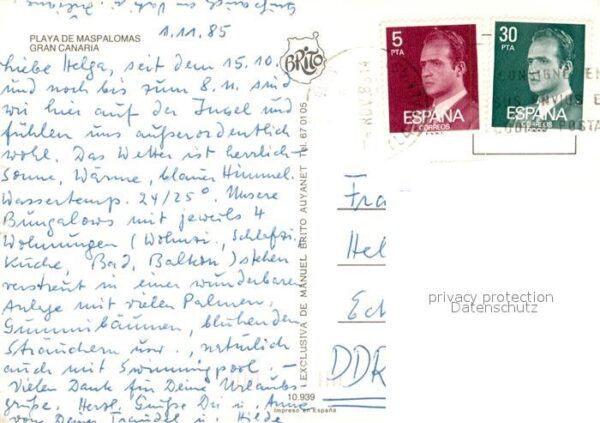 1.11.85
PLAYA DE MASPALOMAS
GRAN CANARIA
Liebe Helga, seit dem 15.10.
und noch bis zum 8.11. sind
wir hier auf der Insel und
fühlen uns außerordentlich
wohl. Das Wetter ist herrlich-
Sonne, Wärme, blauer Himmel.
Wassertemp. 24/25°. Unsere
Bungalows mit jeweils 4
Wohnungen (Wohnzi., Schlafzi.
Küche, Bad, Balkon) stehen
verstreut in einer wunderbaren
Anlage mit vielen Palmen,
Gummibäumen, blühenden
Sträuchern usw., natürlich
auch mit Swimmingpool. –
Vielen Dank für Deine Urlaubs-
grüße. Herzl. Grüße Dir u. Anne
von Deiner Traudel u. Hilde
BRITO
EXCLUSIVA DE MANUEL BRITO AUYANET Tel. 67 01 05
10.939
Impreso en España
5
PTA
ESPAÑA
CORREOS
30
PTA
ESPAÑA
CORREOS
Fra
Hel
Ech
DDR
privacy protection
Datenschutz